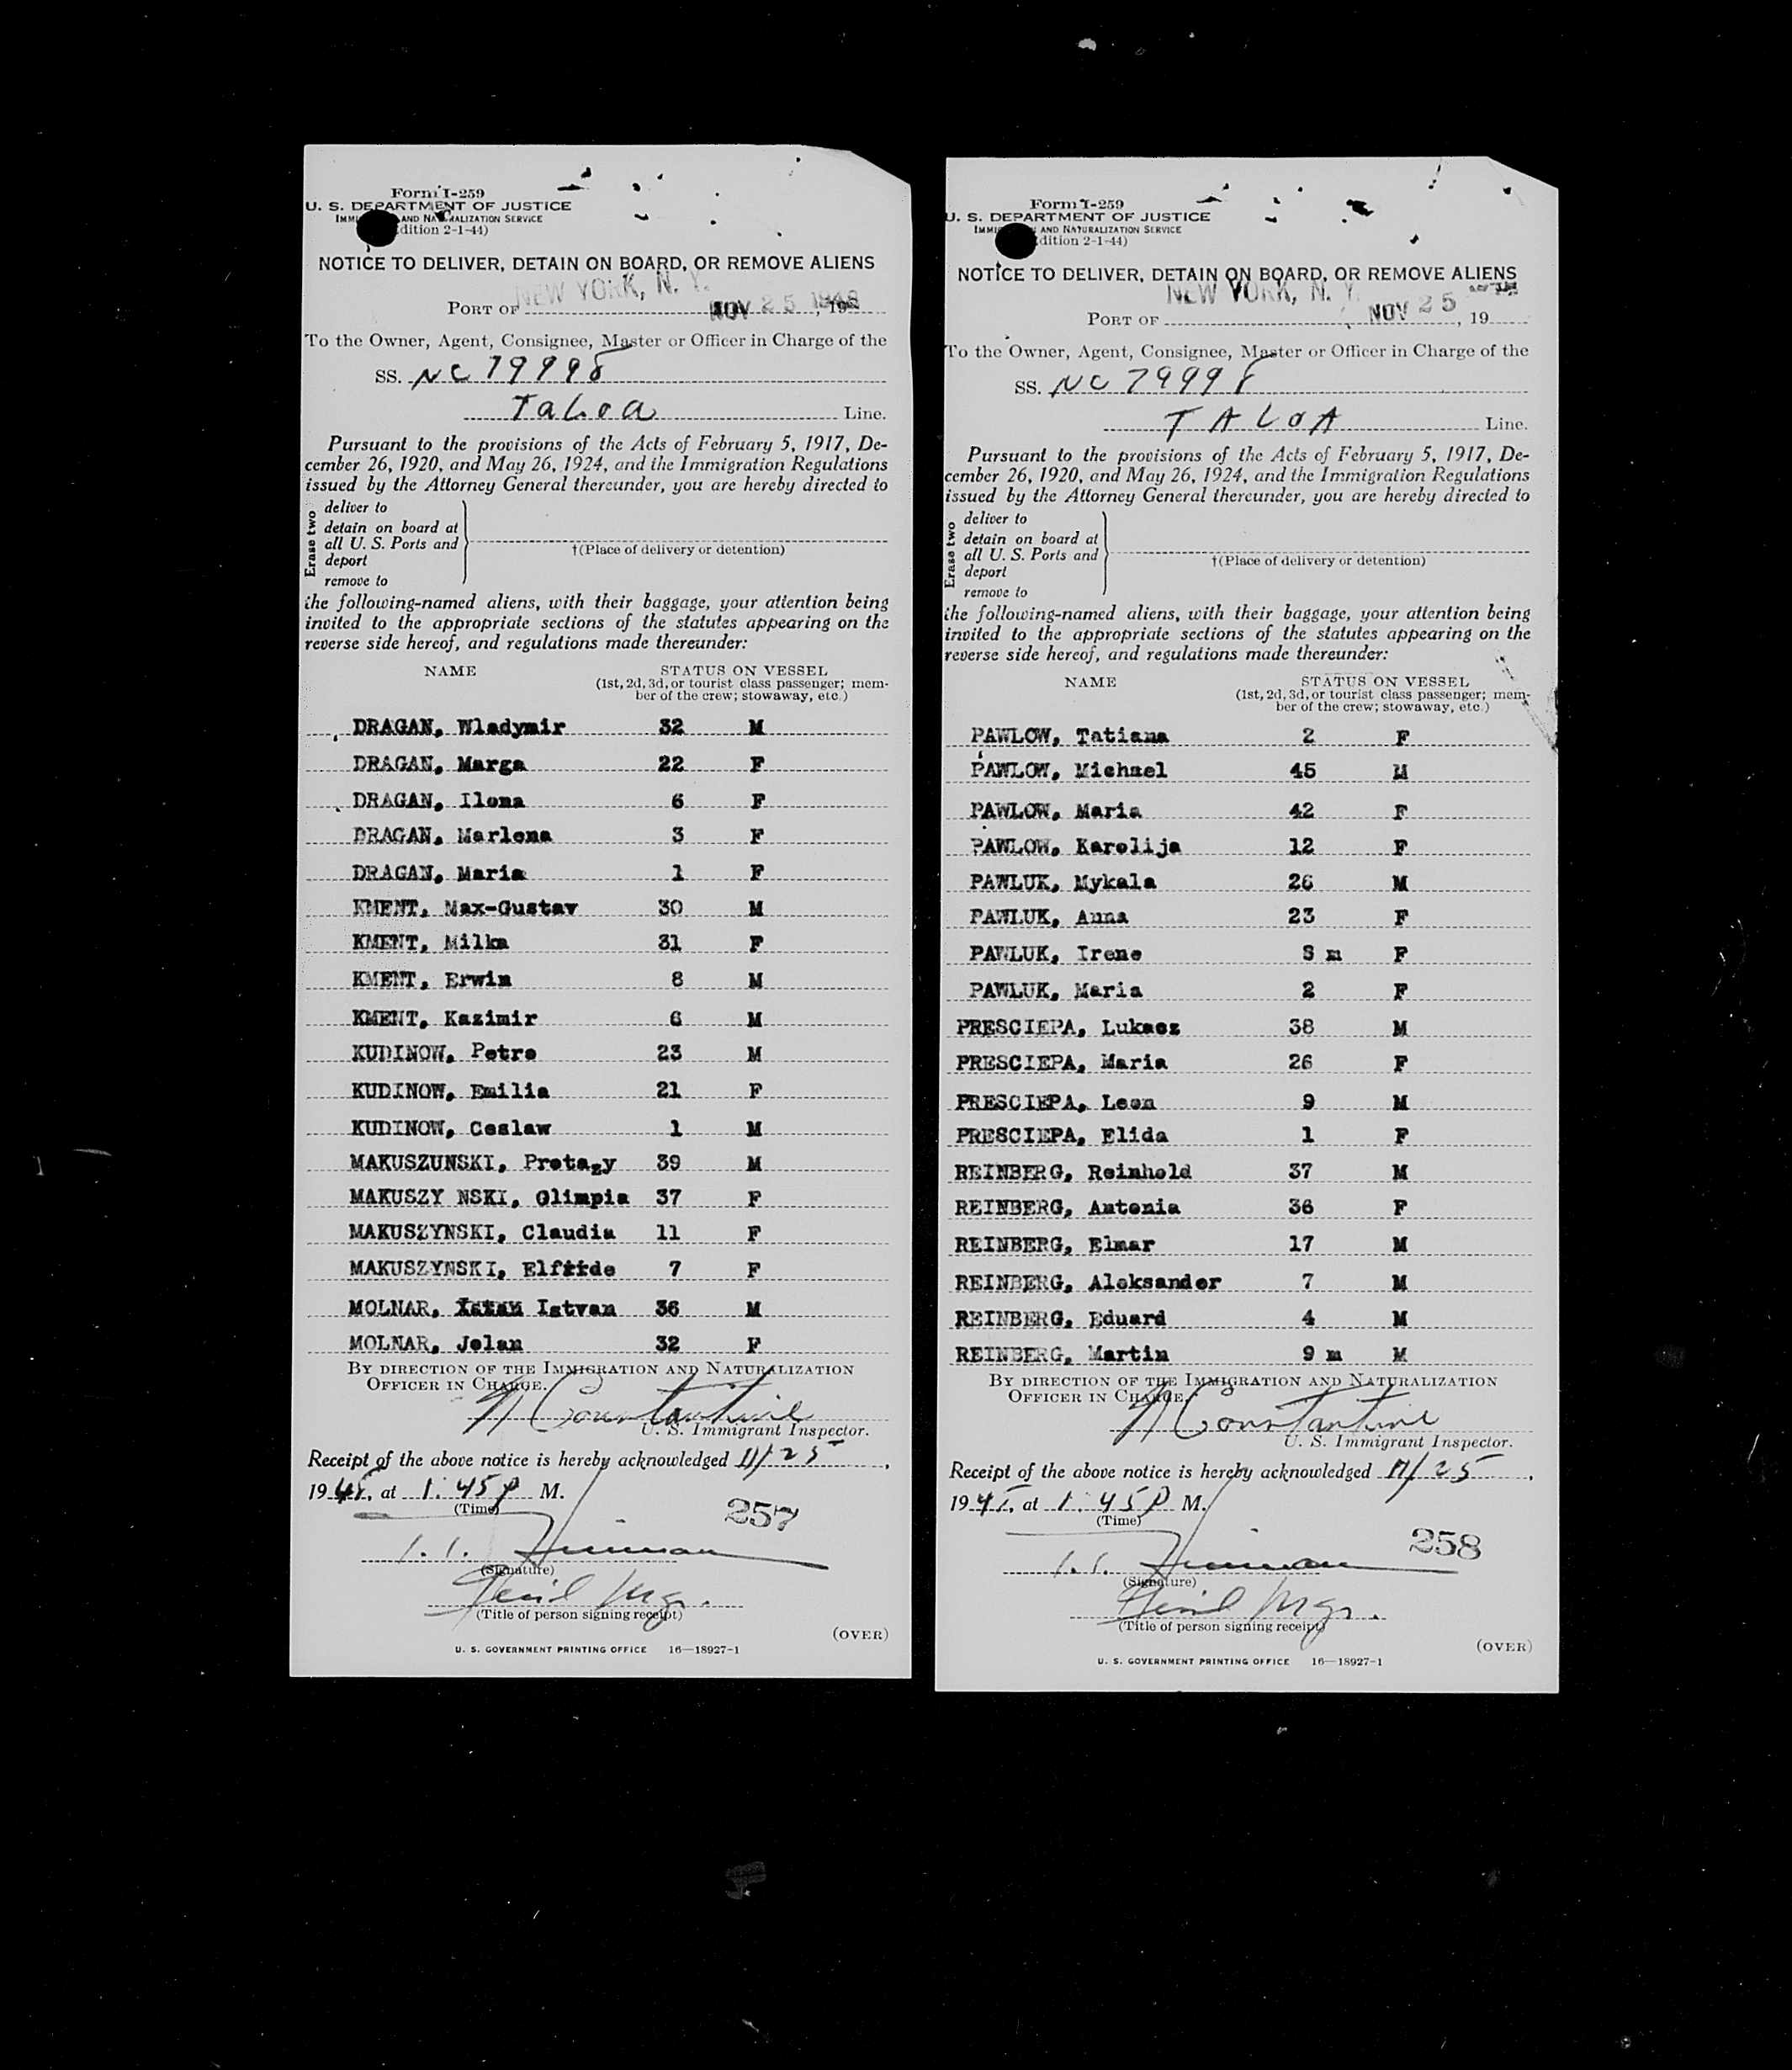 Form I-259
U. S. DEPARTMENT OF JUSTICE
AND NATURALIZATION SERVICE
dition 2-1-44)
NOTICE TO DELIVER, DETAIN ON BOARD, OR REMOVE ALIENS
NEW YORK, N. Y.
PORT OF NOV 25 1948, 19
To the Owner, Agent, Consignee, Master or Officer in Charge of the
SS. NC 79998
Taloa Line.
Pursuant to the provisions of the Acts of February 5, 1917, De-
cember 26, 1920, and May 26, 1924, and the Immigration Regulations
issued by the Attorney General thereunder, you are hereby directed to
Erase two
deliver to
detain on board at
all U. S. Ports and
deport
remove to
†(Place of delivery or detention)
the following-named aliens, with their baggage, your attention being
invited to the appropriate sections of the statutes appearing on the
reverse side hereof, and regulations made thereunder:
NAME STATUS ON VESSEL
(1st, 2d, 3d, or tourist class passenger; mem-
ber of the crew; stowaway, etc.)
DRAGAN, Wladymir 32 M
DRAGAN, Marga 22 F
DRAGAN, Ilona 6 F
DRAGAN, Marlena 3 F
DRAGAN, Maria 1 F
KMENT, Max-Gustav 30 M
KMENT, Milka 31 F
KMENT, Erwin 8 M
KMENT, Kazimir 6 M
KUDINOW, Petro 23 M
KUDINOW, Emilia 21 F
KUDINOW, Ceslaw 1 M
MAKUSZUNSKI, Protazy 39 M
MAKUSZY NSKI, Olimpia 37 F
MAKUSZYNSKI, Claudia 11 F
MAKUSZYNSKI, Elfride 7 F
MOLNAR, Istvan 36 M
MOLNAR, Jolan 32 F
BY DIRECTION OF THE IMMIGRATION AND NATURALIZATION
OFFICER IN CHARGE.
N Constantine
U. S. Immigrant Inspector.
Receipt of the above notice is hereby acknowledged 11/25,
1948, at 1:45 P M.
(Time)
257
(Signature)
Mgr.
(Title of person signing receipt)
(OVER)
U. S. GOVERNMENT PRINTING OFFICE 16—18927-1
Form I-259
U. S. DEPARTMENT OF JUSTICE
AND NATURALIZATION SERVICE
dition 2-1-44)
NOTICE TO DELIVER, DETAIN ON BOARD, OR REMOVE ALIENS
NEW YORK, N. Y.
PORT OF NOV 25, 19
To the Owner, Agent, Consignee, Master or Officer in Charge of the
SS. NC 79998
TALOA Line.
Pursuant to the provisions of the Acts of February 5, 1917, De-
cember 26, 1920, and May 26, 1924, and the Immigration Regulations
issued by the Attorney General thereunder, you are hereby directed to
Erase two
deliver to
detain on board at
all U. S. Ports and
deport
remove to
†(Place of delivery or detention)
the following-named aliens, with their baggage, your attention being
invited to the appropriate sections of the statutes appearing on the
reverse side hereof, and regulations made thereunder:
NAME STATUS ON VESSEL
(1st, 2d, 3d, or tourist class passenger; mem-
ber of the crew; stowaway, etc.)
PAWLOW, Tatiana 2 F
PAWLOW, Michael 45 M
PAWLOW, Maria 42 F
PAWLOW, Karolija 12 F
PAWLUK, Mykala 26 M
PAWLUK, Anna 23 F
PAWLUK, Irene 8 m F
PAWLUK, Maria 2 F
PRESCIEPA, Lukasz 38 M
PRESCIEPA, Maria 26 F
PRESCIEPA, Leon 9 M
PRESCIEPA, Elida 1 F
REINBERG, Reinhold 37 M
REINBERG, Antonia 36 F
REINBERG, Elmar 17 M
REINBERG, Aleksander 7 M
REINBERG, Eduard 4 M
REINBERG, Martin 9 m M
BY DIRECTION OF THE IMMIGRATION AND NATURALIZATION
OFFICER IN CHARGE.
N Constantine
U. S. Immigrant Inspector.
Receipt of the above notice is hereby acknowledged 11/25,
1948, at 1:45 P M.
(Time)
258
(Signature)
Mgr.
(Title of person signing receipt)
(OVER)
U. S. GOVERNMENT PRINTING OFFICE 16—18927-1